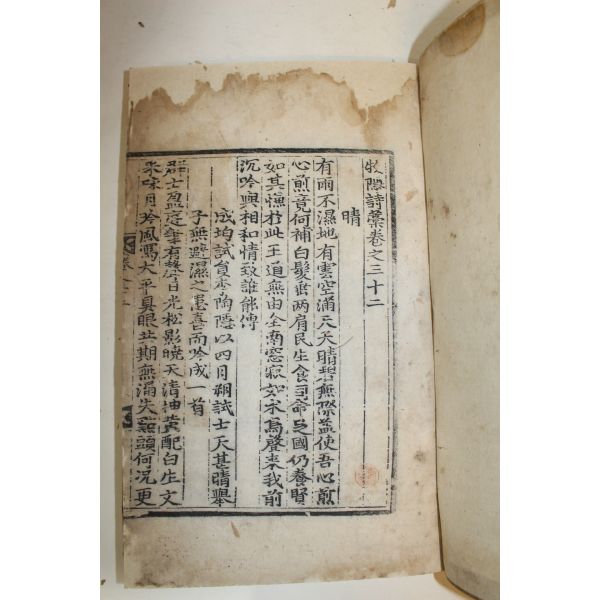 牧隱詩藁卷之三十二
晴
有雨不濕地有雲空滿天天晴碧無際益使吾心煎
心煎竟何補白髮垂两肩民生食司命乏國仍養賢
如其憮於此王道無由全南窓寂如水烏聲來我前
沉吟與相和情致誰能傳
成均試貟李陶隱以四月朔試士天甚晴舉
子無避濕之患喜而吟成一首
群士盈庭筆有聲日光松影曉天清抽黃配白生文
采咏月吟風鳴太平具眼步期無漏失點頭何况更